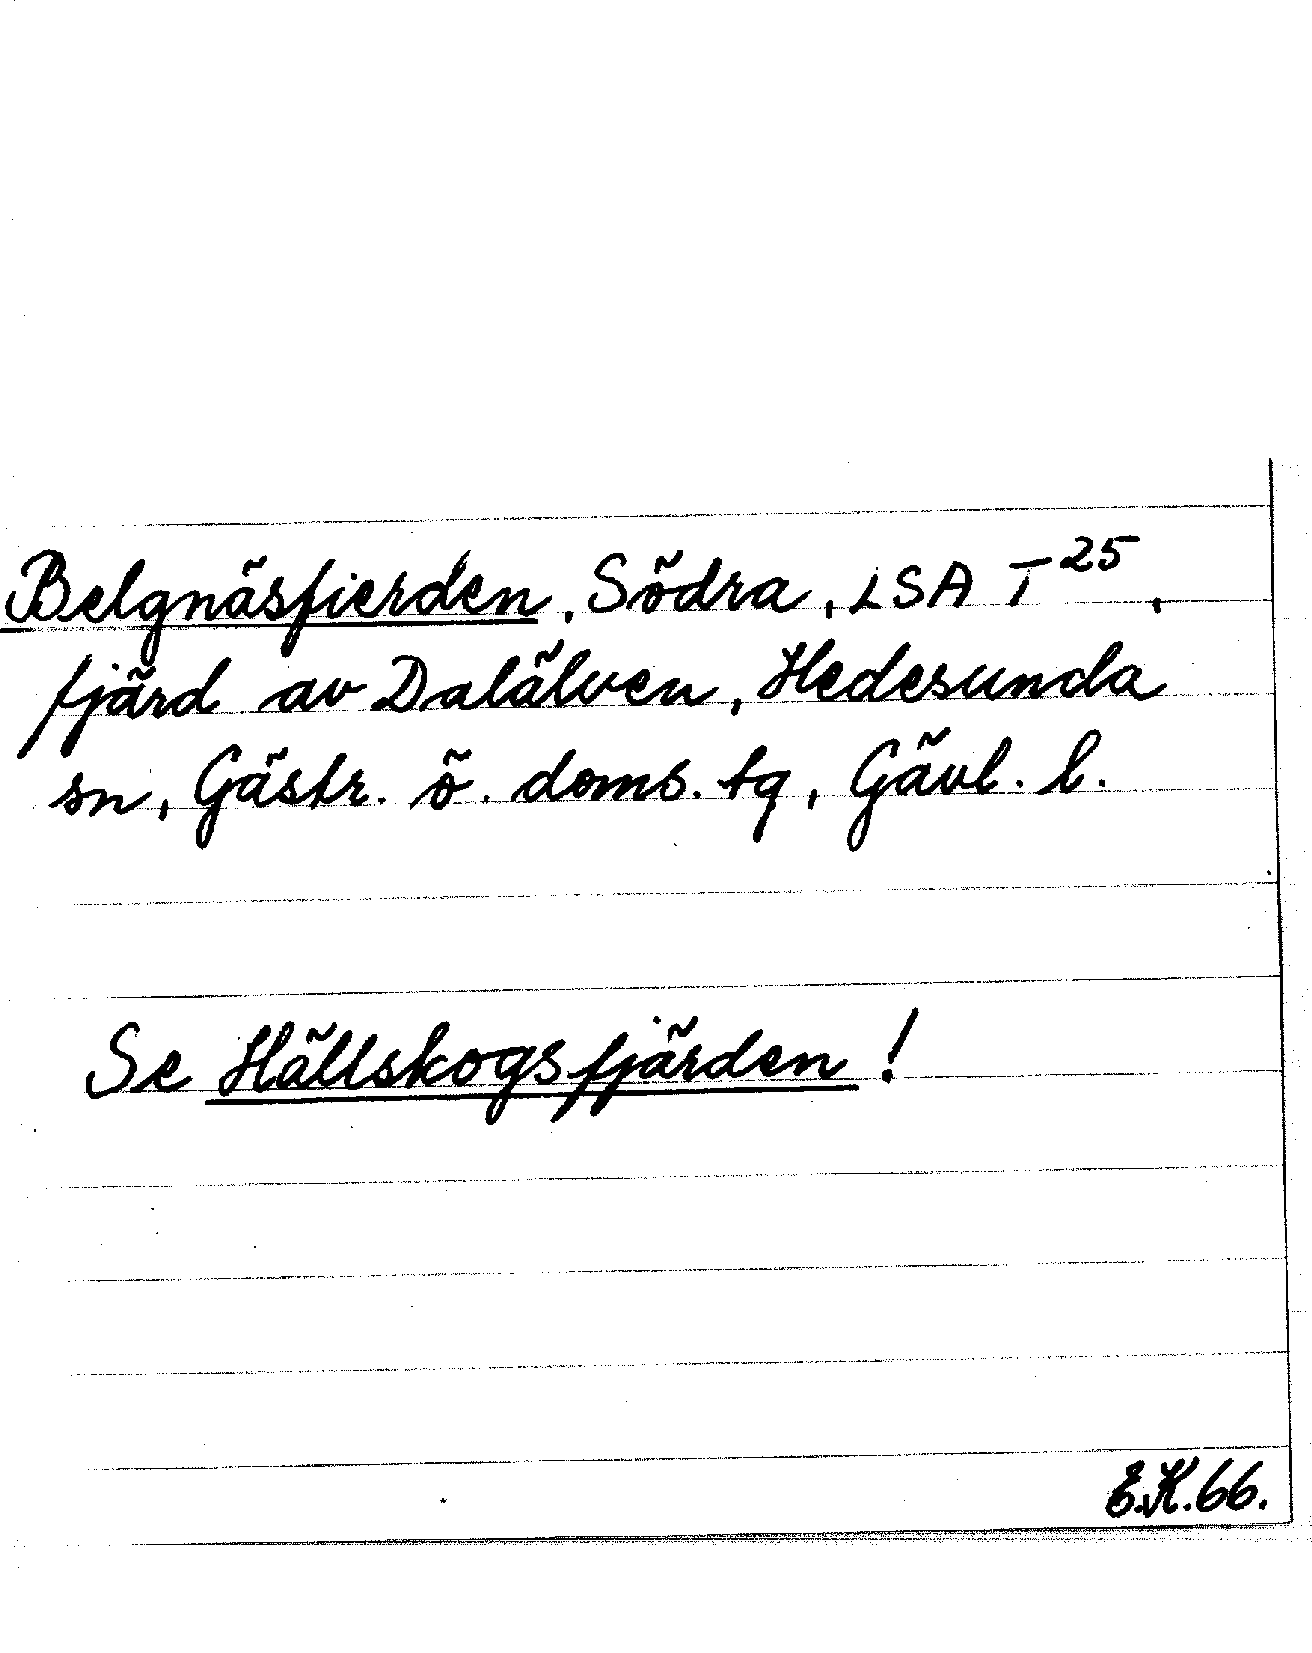 Belgnäsfierden, Södra, LSA T²⁵,
fjärd av Dalälven, Hedesunda
sn, Gästr. ö. doms. tg, Gävl. l.
Se Hällskogsfjärden!
E.K.66.